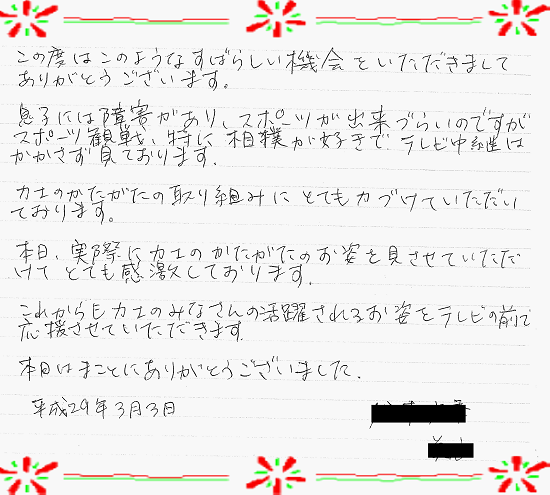 この度はこのようなすばらしい機会をいただきまして
ありがとうございます。
息子には障害があり、スポーツが出来づらいのですが
スポーツ観戦、特に相撲が好きで テレビ中継は
かかさず見ております.
力士のかたがたの取り組みに とても力づけていただい
ております。
本日、実際に力士の かたがたのお姿を見させていただ
けて とても感激しております.
これからも力士のみなさんの活躍されるお姿をテレビの前で
応援させていただきます.
本日はまことにありがとうございました.
平成29年3月3日